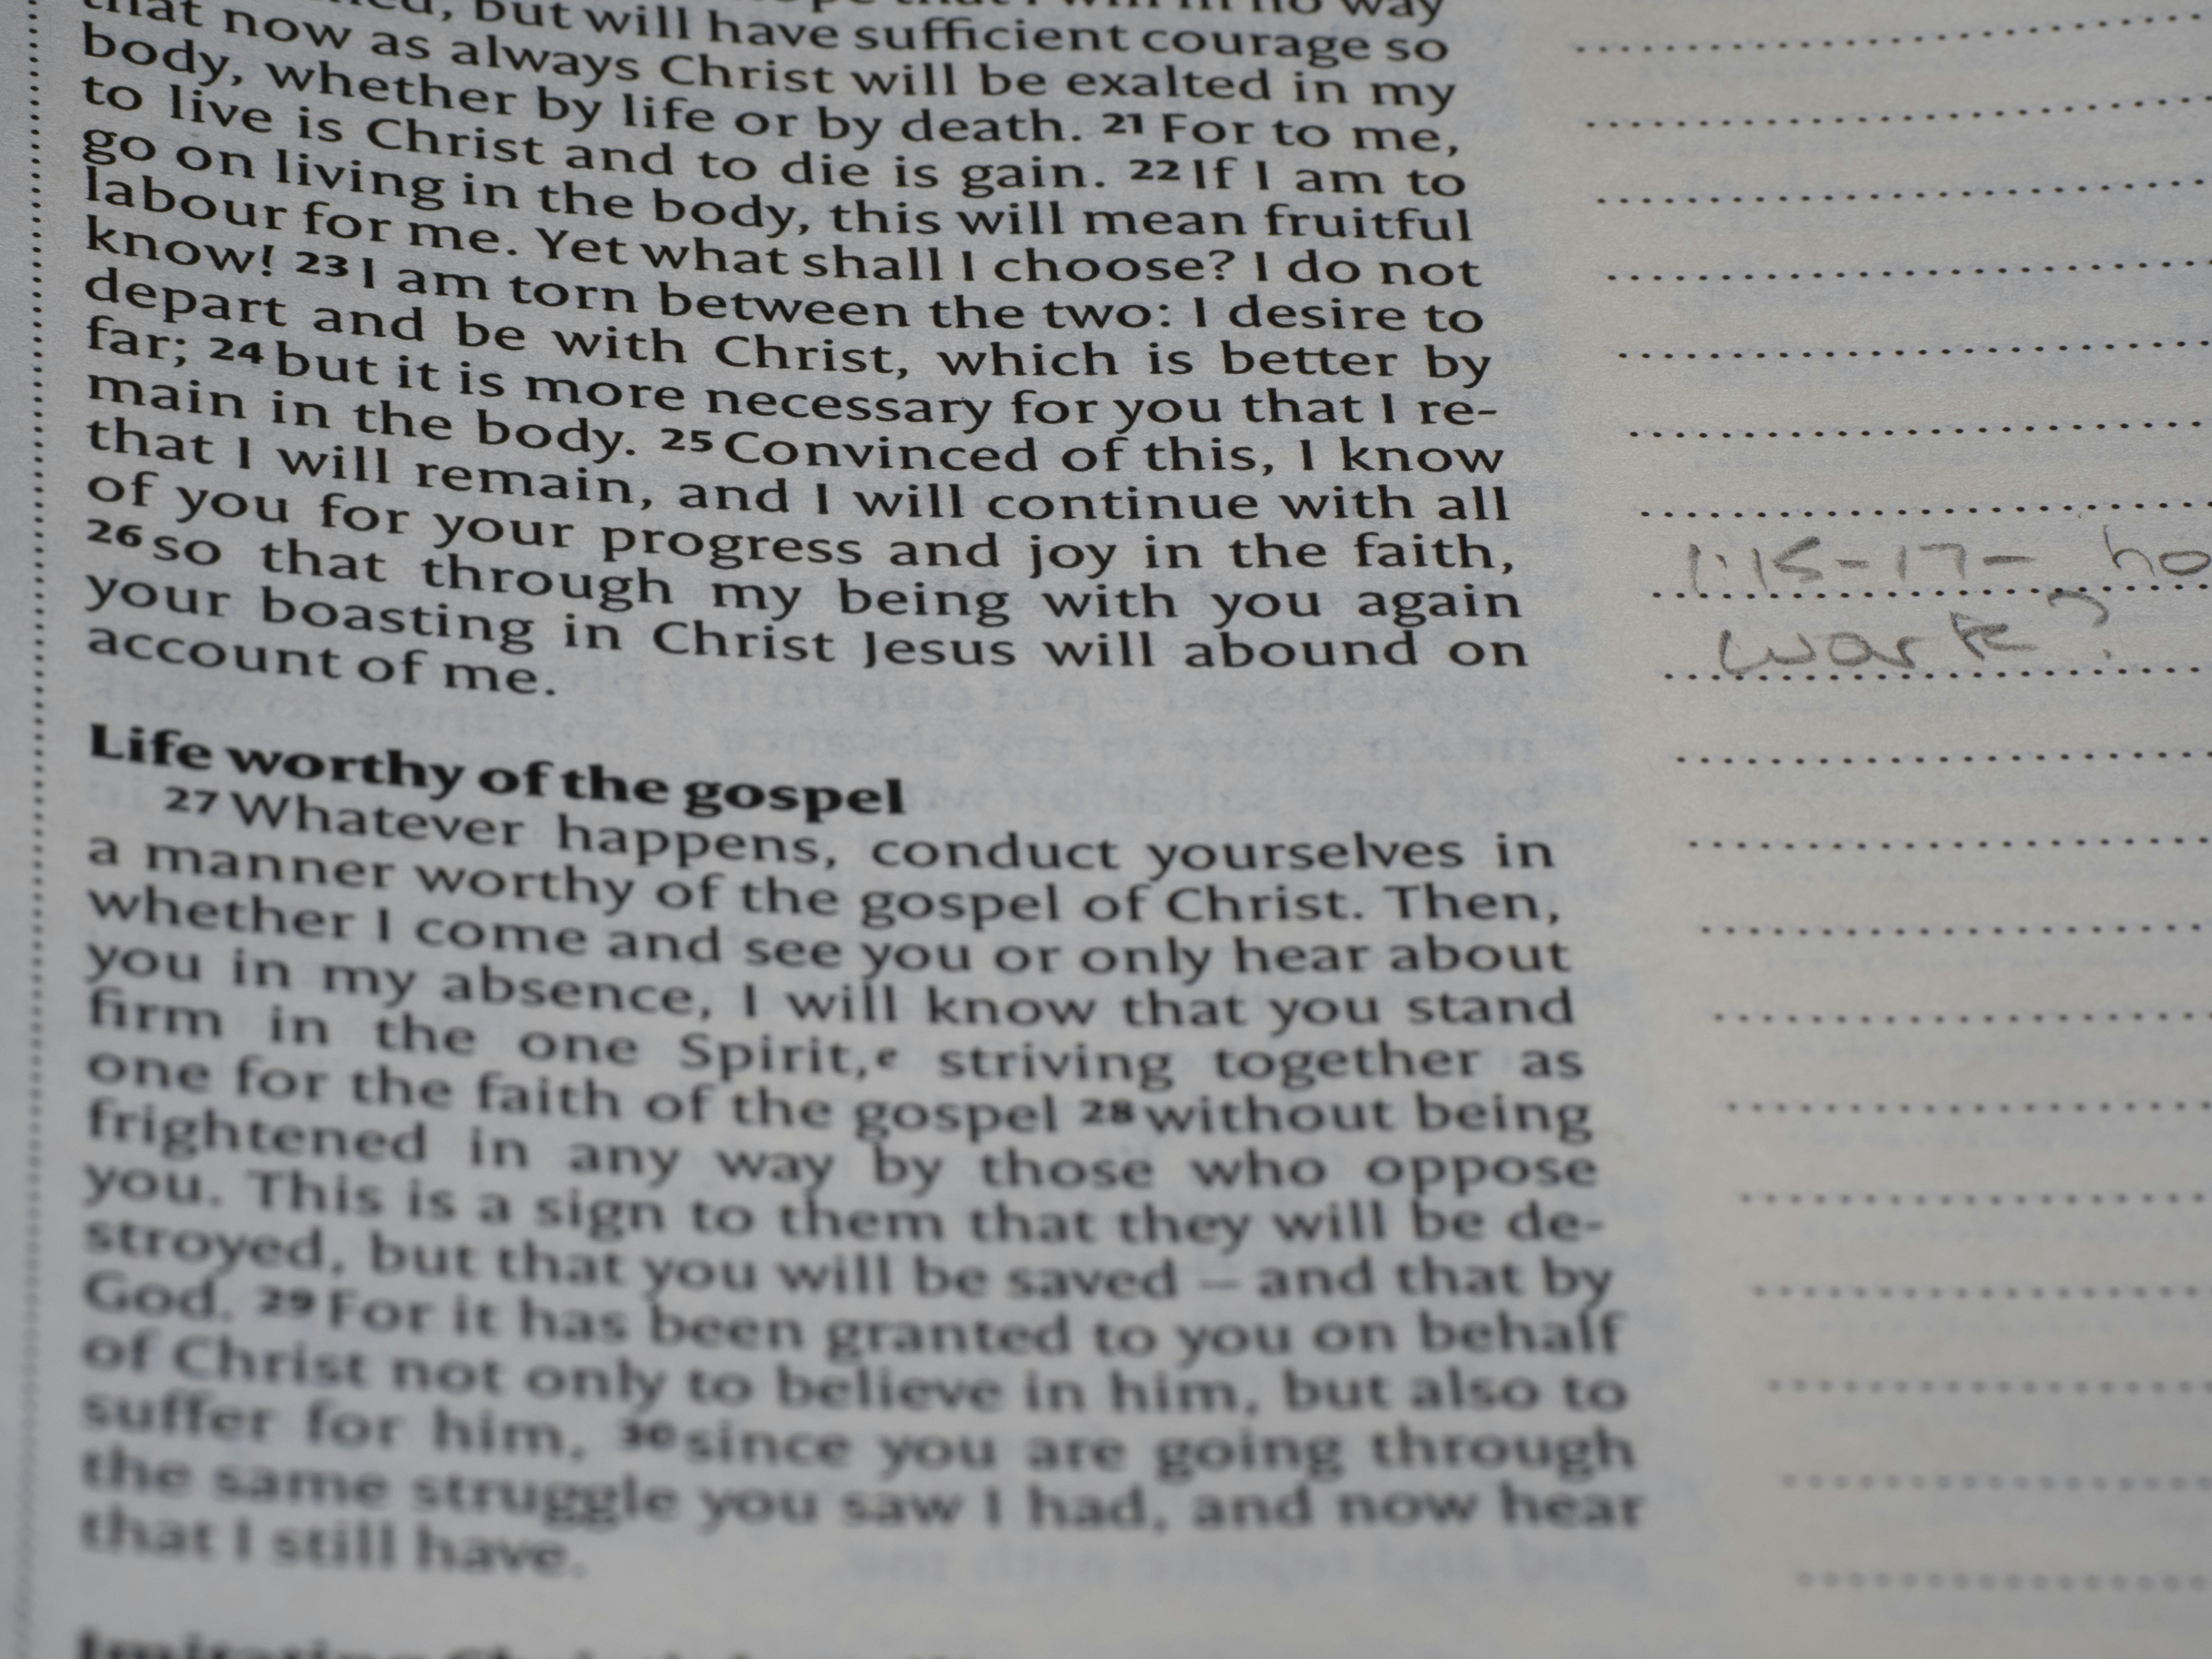 but will have sufficient courage so
that now as always Christ will be exalted in my
body, whether by life or by death. 21 For to me,
to live is Christ and to die is gain. 22 If I am to
go on living in the body, this will mean fruitful
labour for me. Yet what shall I choose? I do not
know! 23 I am torn between the two: I desire to
depart and be with Christ, which is better by
far; 24 but it is more necessary for you that I re-
main in the body. 25 Convinced of this, I know
that I will remain, and I will continue with all
of you for your progress and joy in the faith,
26 so that through my being with you again
your boasting in Christ Jesus will abound on
account of me.
Life worthy of the gospel
27 Whatever happens, conduct yourselves in
a manner worthy of the gospel of Christ. Then,
whether I come and see you or only hear about
you in my absence, I will know that you stand
firm in the one Spirit,e striving together as
one for the faith of the gospel 28 without being
frightened in any way by those who oppose
you. This is a sign to them that they will be de-
stroyed, but that you will be saved – and that by
God. 29 For it has been granted to you on behalf
of Christ not only to believe in him, but also to
suffer for him, 30 since you are going through
the same struggle you saw I had, and now hear
that I still have.
1:15-17- ho
work?